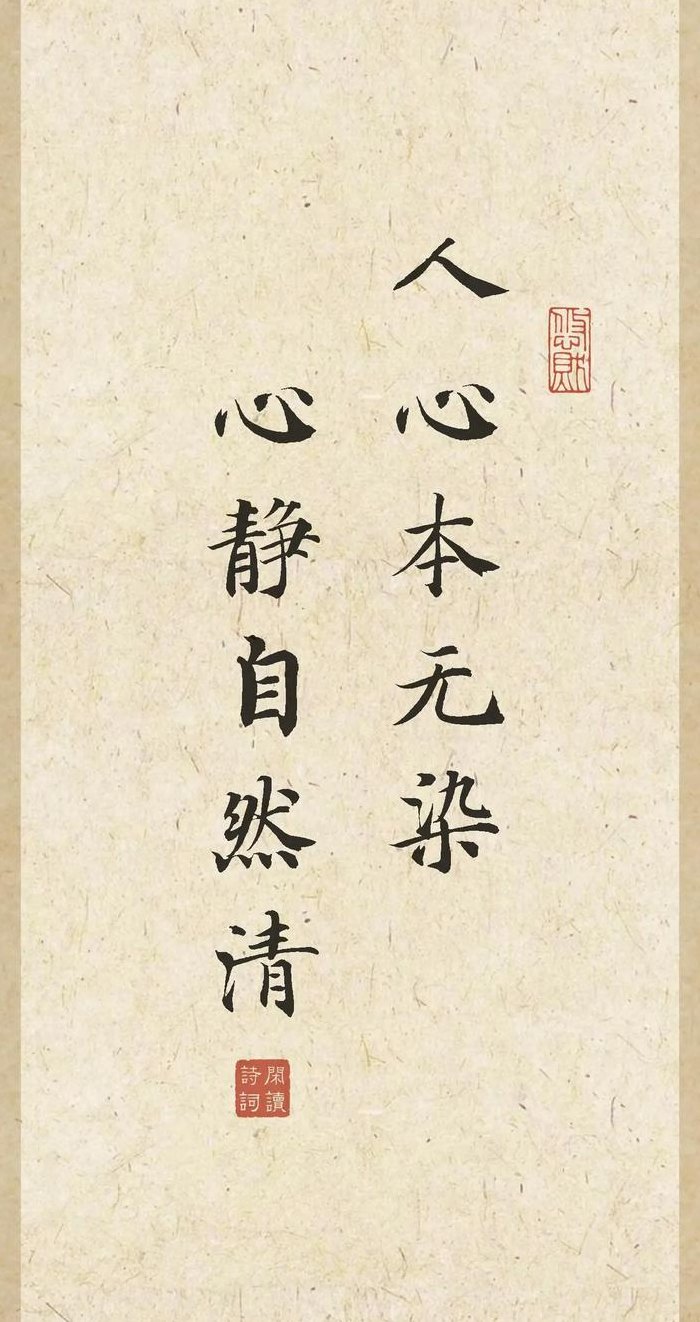 人心本无染
心静自然清
閑讀
詩詞